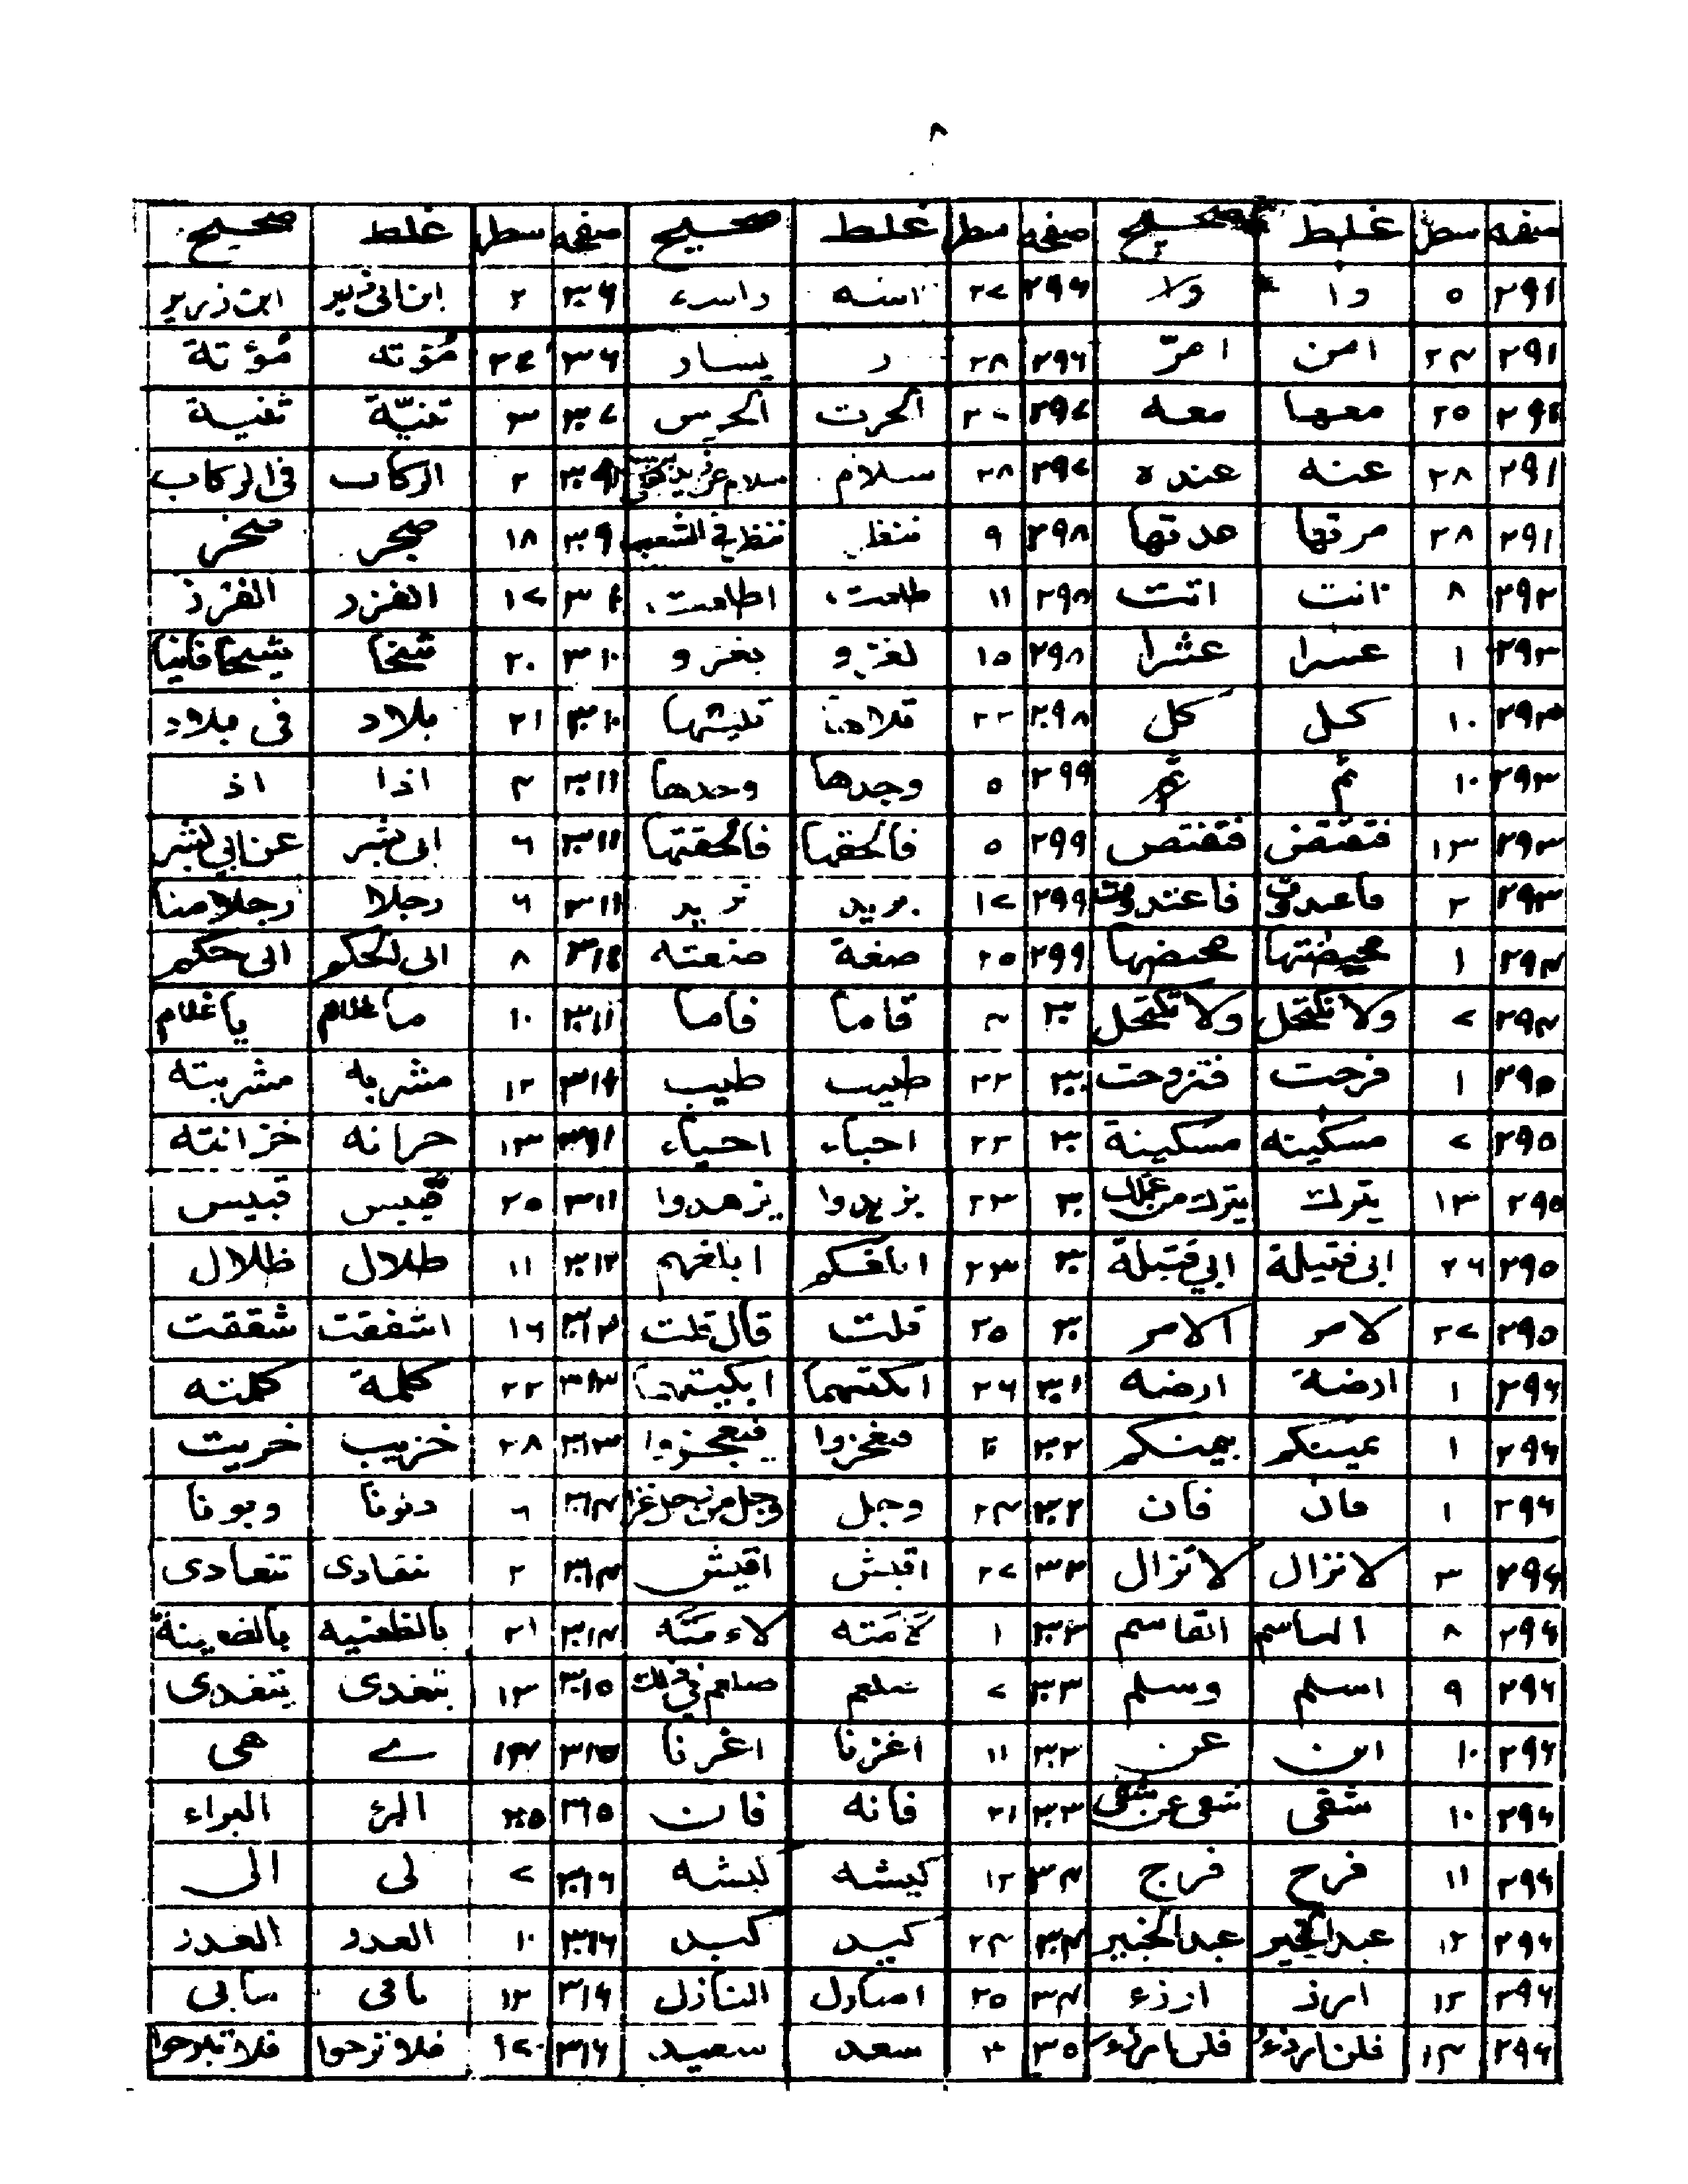 ٨
صفحه سطر غلط صحيح صفحه سطر غلط صحيح صفحه سطر غلط صحيح
٢٩١ ٥ وا ولا ٢٩٦ ٢٧ اسنه ٣٠٦ ٢ ابن ابی زبیر ابن زریر
٢٩١ ٢٤ امن امرّ ٢٩٦ ٢٨ ر یسار ٣٠٦ ٢٤ مُؤته مُؤتة
٢٩١ ٢٥ معها معه ٢٩٧ ٢٠ الحرت الحرس ٣٠٧ ٣ تنيّة ثنية
٢٩١ ٢٨ عنه عنده ٢٩٧ ٢٨ سلام ٣٠٩ ٢ الركاب فى الركاب
٢٩١ ٢٨ مرتها حدتها ٢٩٨ ٩ فنظر فنظر فى الشعب ٣٠٩ ١٨ صجر صخر
٢٩٢ ٨ انت اتت ٢٩٨ ١١ طلعت اطلعت ١٧ الفزر الفزز
٢٩٣ ١ عسرا عشرا ٢٩٨ ١٥ لغزو بغزو ٣١٠ ٢٠ شيخا شيخا فانيا
٢٩٣ ١٠ كل كل ٢٩٨ ٢٢ ٣١٠ ٢١ بلاد فى بلاد
٢٩٣ ١٠ ثم ثم ٢٩٩ ٥ وجدها وحدها ٣١١ ٤ اذا اذ
٢٩٣ ١٣ فتقتض فتفتض ٢٩٩ ٥ فالحقها فالحقتها ٣١١ ٦ ابى بشر عن ابي بشر
٢٩٣ ٢ ٢٩٩ ١٧ يريد تريد ٣١١ ٦ رجلا رجلا منا
٢٩٤ ١ ٢٩٩ ٢٥ صغة صنعته ٣١١ ٨ الى الحكم الى حكم
٢٩٤ ٧ ولا تكتحل ولا تكتحل ٣٠٠ ٤ قاما فاما ٣١١ ١٠ ما غلام يا غلام
٢٩٥ ١ فرجت فتزوجت ٣٠٠ ٢٢ طيب طيب ٣١١ ١٢ مشربه مشربته
٢٩٥ ٧ مسكينه مسكينة ٣٠٠ ٢٢ احباء احياء ٣١١ ١٣ حرانه خزانته
٢٩٥ ١٣ يترك يترك من عملك ٣٠٠ ٢٣ يزيدوا يزهدوا ٣١١ ٢٥ قبيس
٢٩٥ ٢٦ ابى فتيلة ابي قتيلة ٣٠٠ ٢٣ ابلغكم ابلغهم ٣١٢ ١١ طلال ظلال
٢٩٥ ٢٧ لامر الامر ٣٠٠ ٢٥ قلت قال قلت ٣١٢ ١٦ اشفقت شققت
٢٩٦ ١ ارضة ارضه ٣٠١ ٢٦ ابكتهما ابكيتهما ٣١٣ ٢٢ كلمة كلمته
٢٩٦ ١ يمينكم بيمينكم ٣٠٢ ٣١٣ ٢٨ خزيب خريت
٢٩٦ ١ مان فان ٣٠٢ ٢٤ وجل ٣١٤ ٦ دنونا ودبونا
٢٩٦ ٣ لا نزال لا تزال ٣٠٢ ٢٧ اقبش اقيش ٣١٤ ٢ نتفادى نتعادى
٢٩٦ ٨ القاسم ٣٠٣ ١ لأمته لاءمته ٣١٤ ٢١ بالظعنيه بالضعينة
٢٩٦ ٩ اسلم وسلم ٣٠٣ ٧ صلعم صلعم فى ذلك ٣١٥ ١٣ بتغدى يتغدى
٢٩٦ ١٠ ابن عن ٣٠٣ ١١ اغزنا اغرنا ٣١٥ ١٤ ے هى
٢٩٦ ١٠ شقى شقى عن شقى ٣٠٣ ٢١ فانه فان ٣١٥ ٢٥ البرء البراء
٢٩٦ ١١ فرح فرج ٣٠٤ ١٢ كيشه لبشه ٣١٦ ٧ لى الى
٢٩٦ ١٢ عبد الخير عبد الخبير ٣٠٤ ٢٤ كيد كبد ٣١٦ ١٠ العدو العدد
٢٩٦ ١٢ ارذ ارزء ٣٠٤ ٢٥ المنازل ٣١٦ ١٢
٢٩٦ ١٤ ٣٠٥ ٢ سعد سعيد ٣١٦ ١٧ فلا تزحوا فلا تبرحوا